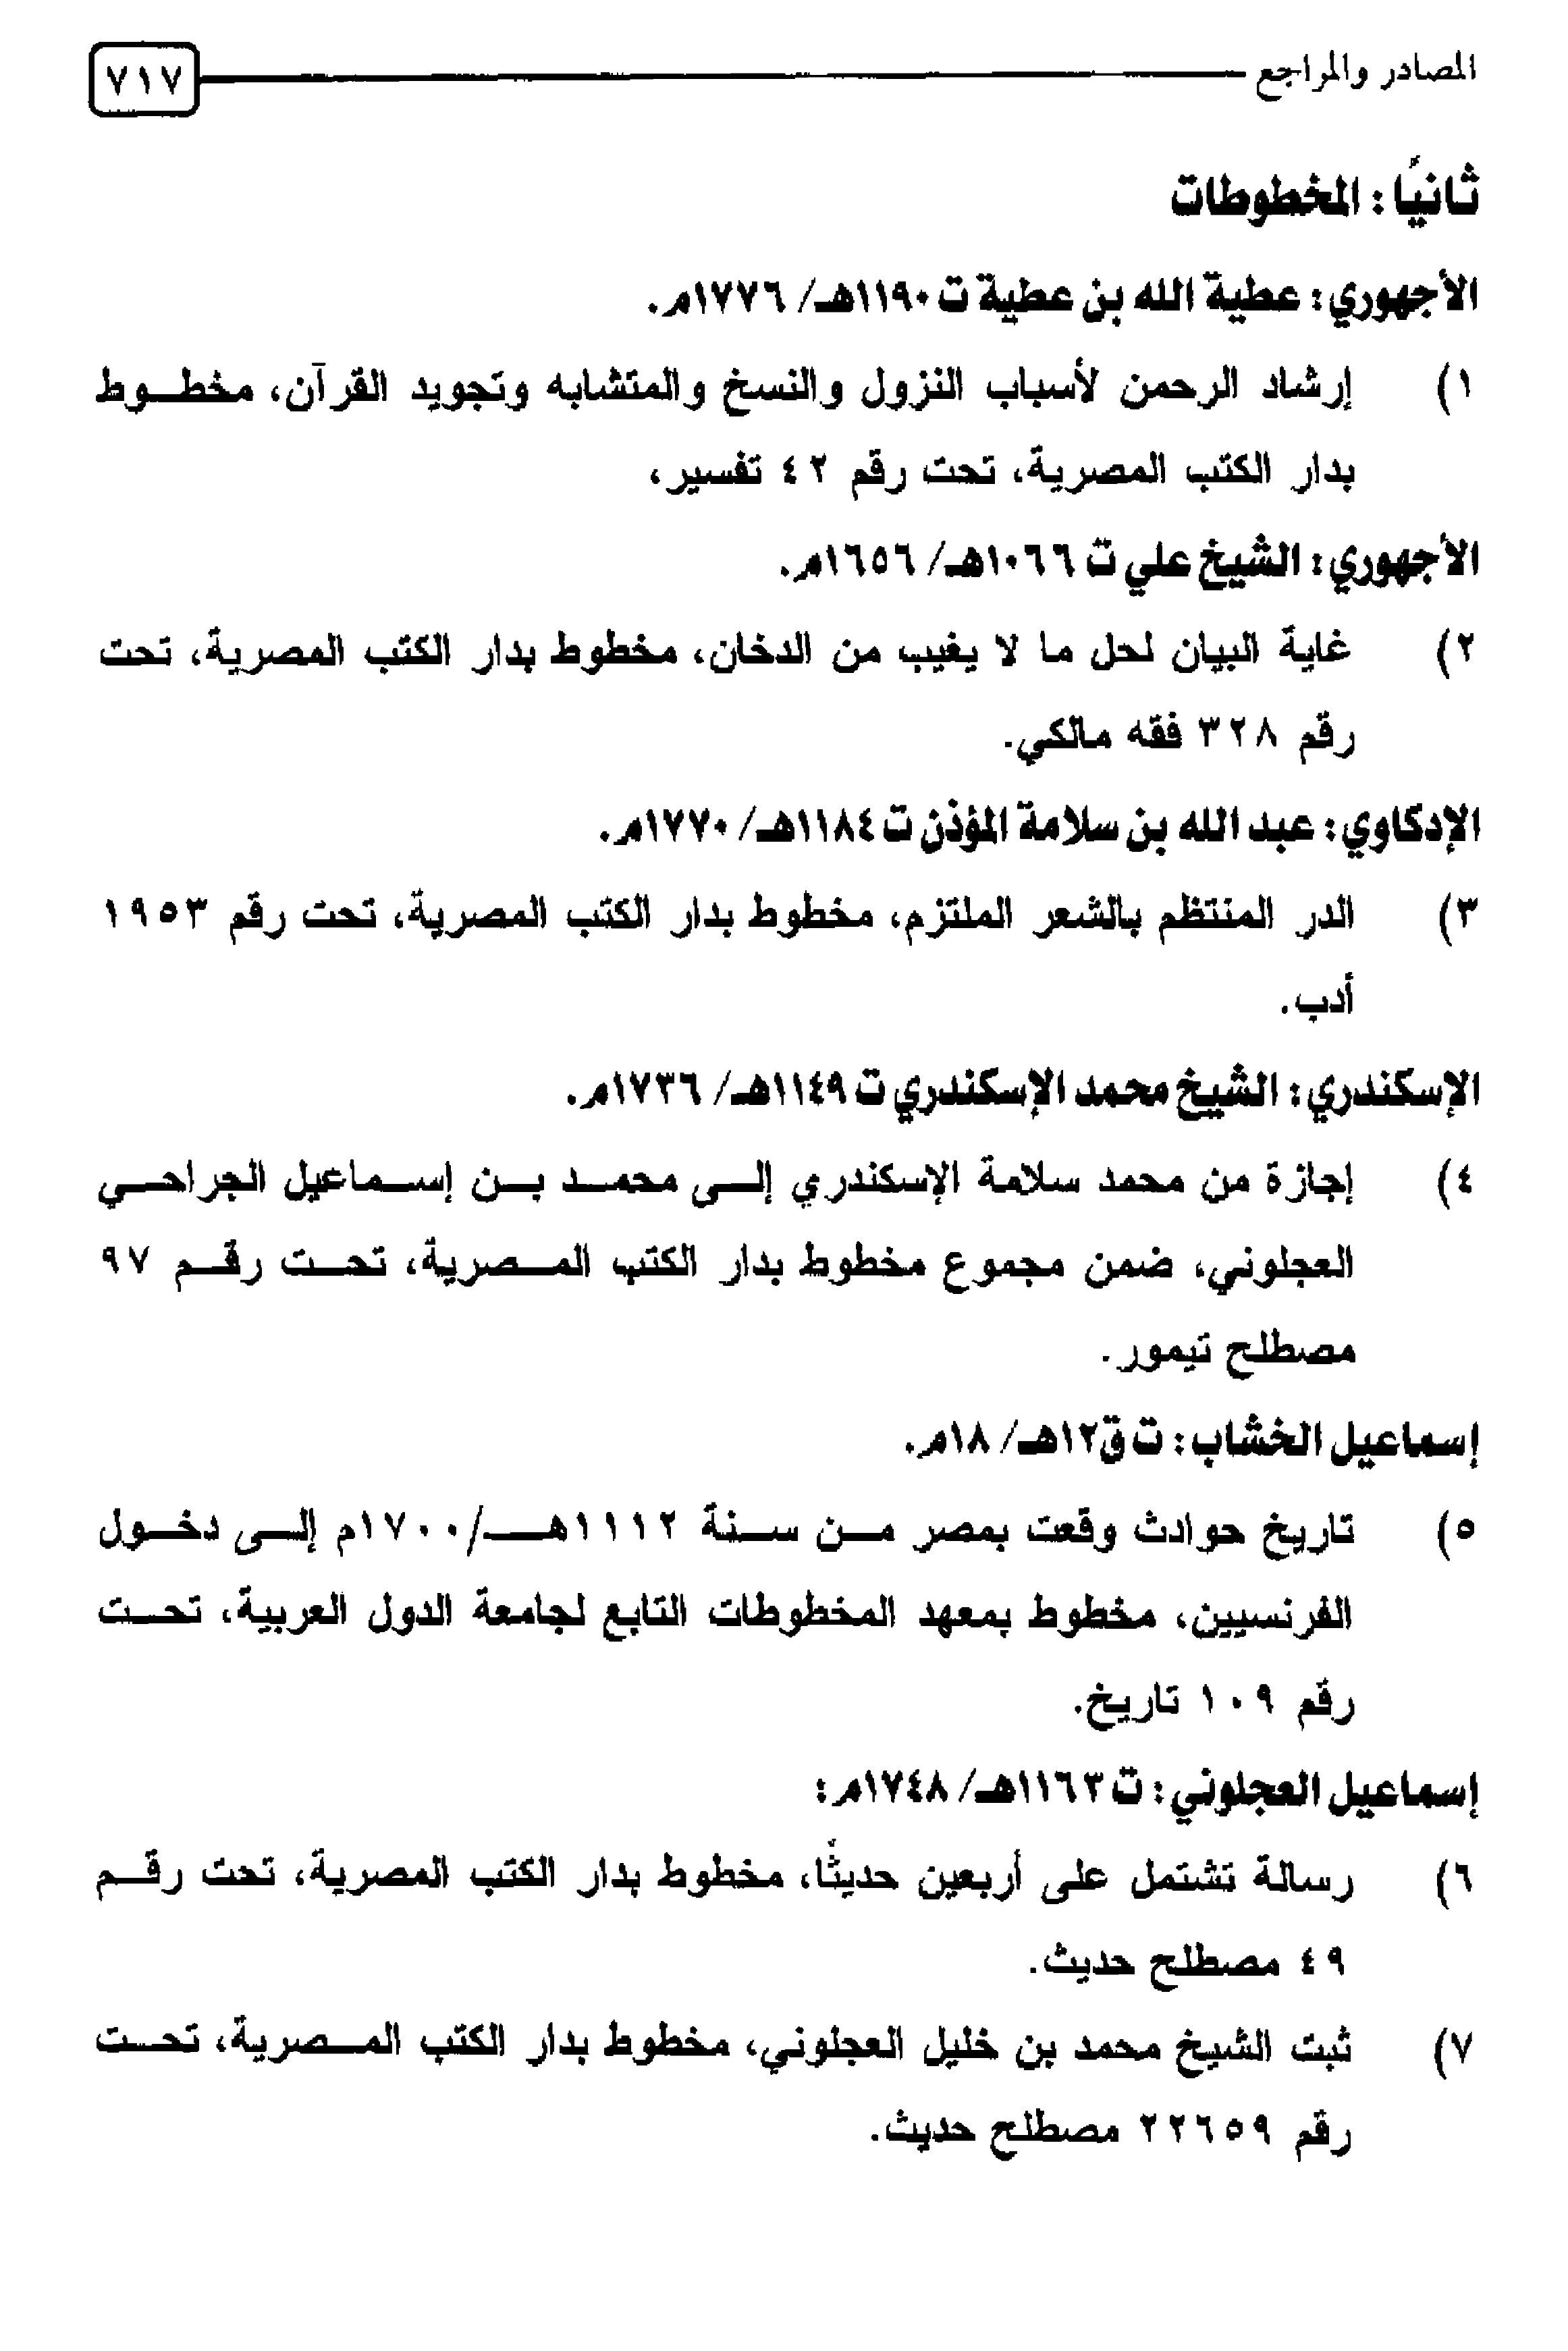 المصادر والمراجع ٧١٧
ثانيًا : المخطوطات
الأجهوري : عطية الله بن عطية ت ١١٩٠هـ/ ١٧٧٦م.
١) إرشاد الرحمن لأسباب النزول والنسخ والمتشابه وتجويد القرآن، مخطـوط
بدار الكتب المصرية، تحت رقم ٤٢ تفسير،
الأجهوري : الشيخ علي ت ١٠٦٦هـ/ ١٦٥٦م.
٢) غاية البيان لحل ما لا يغيب من الدخان، مخطوط بدار الكتب المصرية، تحت
رقم ٣٢٨ فقه مالكي.
الإدكاوي : عبد الله بن سلامة المؤذن ت ١١٨٤هـ/ ١٧٧٠م.
٣) الدر المنتظم بالشعر الملتزم، مخطوط بدار الكتب المصرية، تحت رقم ١٩٥٣
أدب.
الإسكندري : الشيخ محمد الإسكندري ت ١١٤٩هـ/ ١٧٣٦م.
٤) إجازة من محمد سلامة الإسكندري إلـى محمـد بـن إسـماعيل الجراحـي
العجلوني، ضمن مجموع مخطوط بدار الكتب المـصرية، تحـت رقـم ٩٧
مصطلح تيمور.
إسماعيل الخشاب : ت ق١٢هـ/ ١٨م.
٥) تاريخ حوادث وقعت بمصر مـن سـنة ١١١٢هـ/١٧٠٠م إلـى دخـول
الفرنسيين، مخطوط بمعهد المخطوطات التابع لجامعة الدول العربية، تحـت
رقم ١٠٩ تاريخ.
إسماعيل العجلوني : ت ١١٦٣هـ/ ١٧٤٨م:
٦) رسالة تشتمل على أربعين حديثًا، مخطوط بدار الكتب المصرية، تحت رقـم
٤٩ مصطلح حديث.
٧) ثبت الشيخ محمد بن خليل العجلوني، مخطوط بدار الكتب المـصرية، تحـت
رقم ٢٢٦٥٩ مصطلح حديث.